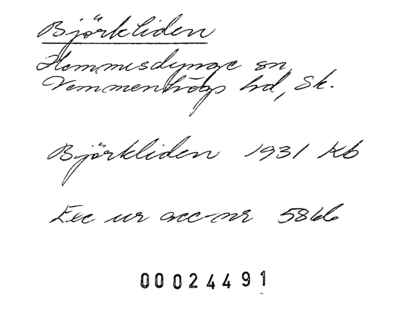 Björkliden
Hemmesdynge sn,
Vemmenhögs hd, Sk.
Björkliden 1931 Kb
Exc ur acc-nr 5866
00024491